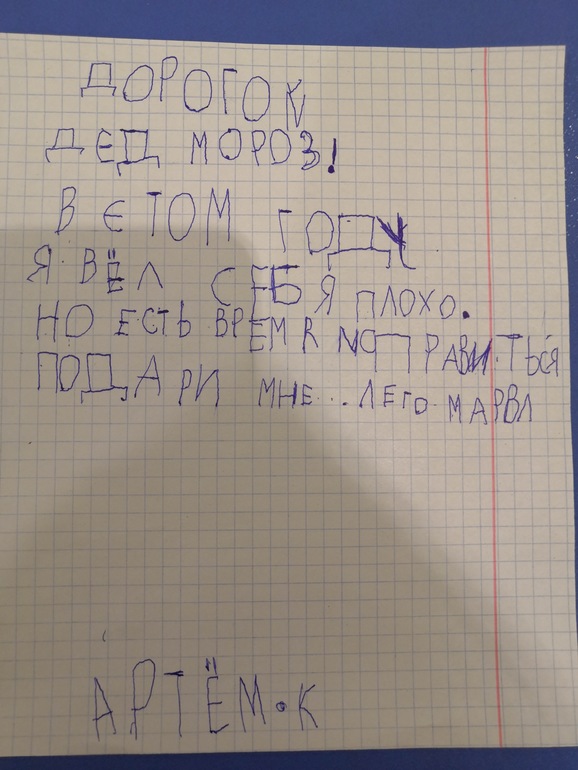 ДОРОГОЙ
ДЕД МОРОЗ!
В ЄТОМ ГОДУ
Я ВЁЛ СЕБЯ ПЛОХО.
НО ЕСТЬ ВРЕМЯ ИСПРАВИТЬСЯ
ПОДАРИ МНЕ... ЛЕГО МАРВЛ
АРТЁМ. К